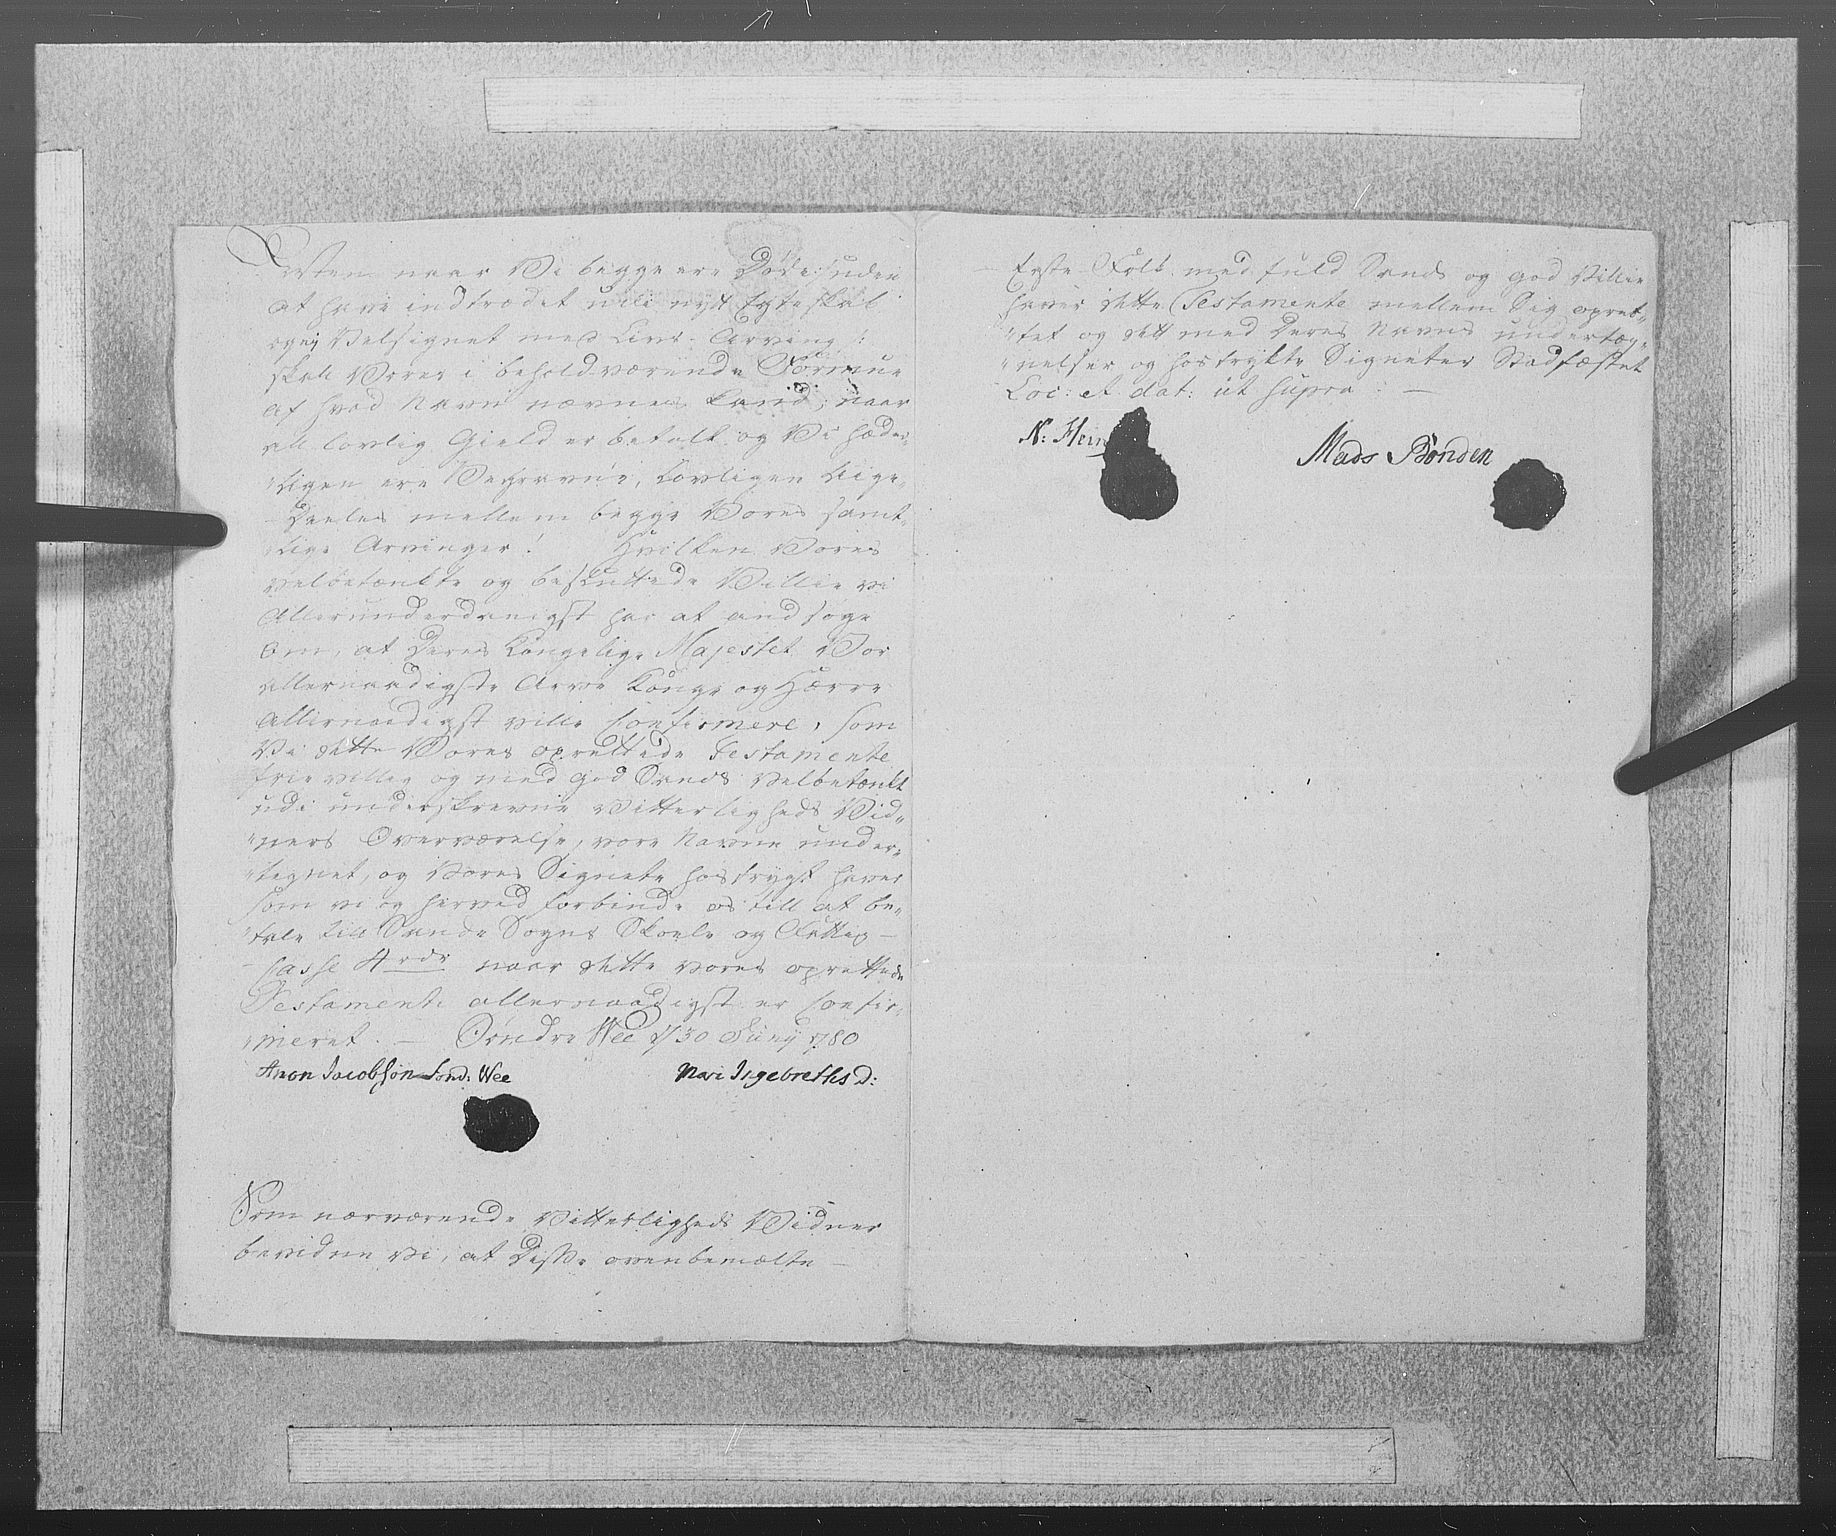 Resten naar Vi begge ere Døde: uden
at have indtrædet udi nyt Egteskab
og ey Velsignet med Livs-Arving:
skal Vores i behold værende Formue
af hvad Navn nævnes kand, naar
all lovlig Gield er betalt og Vi hæder,,
,,ligen ere Begravne, Lovligen Lige,,
Deeles mellem begge Vores samt,,
,,lige Arvinger! Hvilken Vores
velbetænkte og besluttede Villie vi
Allerunderdanigst har at andsøge
om, at Deres Kongelige Majestet Vor
allernaadigste Arve Konge og Herre
Allernaadigst ville Confirmere, som
Vi dette Vores oprettede Testamente
frie villig og med god Sands Velbetænkt
udi underskrevne Vitterligheds Vid,,
,,ners Overværelse, vore Navne under,,
,,tegnet, og Vores Signete hostrygt haver
som vi og herved forbinde os till at be,,
,,tale till Sande Sogns Skoele og Fattig
Casse 4 rdr naar dette vores oprettede
Testamente allernaadigst er Confir,,
,,meret. — Søndre Wee d/30 Juny 1780
Anon Jacobsøn Sond: Wee Mari Ingebreths D:
Som nærværende Vitterligheds Vidner
bevidne vi, at Disse ovenbemælte —
— Egte-Folk med fuld Sands og god Villie
haver dette Testamente mellem Sig opret,,
,,tet og det med Deres Navns undertæg,,
,,nelser og hostrykte Signeter Stadfæstet
Loc: et dat: ut supra. —
N: Hein Mads Bonden